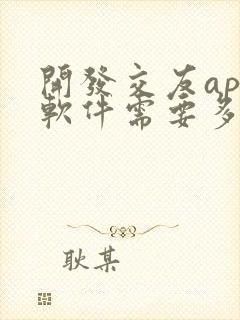 開發交友ap
軟件需要多
耿某